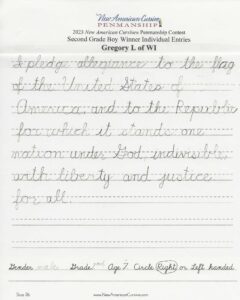 New American Cursive
PENMANSHIP
2023 New American Cursive Penmanship Contest
Second Grade Boy Winner Individual Entries
Gregory L of WI
I pledge allegiance to the flag
of the United States of
America, and to the Republic
for which it stands one
nation under God, indivisible,
with liberty and justice
for all.
Gender male Grade 2nd Age 7 Circle Right or Left handed
www.NewAmericanCursive.com